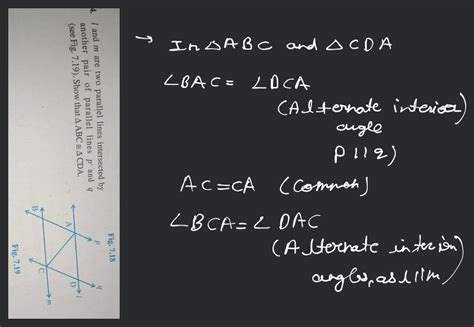 4. l and m are two parallel lines intersected by
another pair of parallel lines p and q
(see Fig. 7.19). Show that △ ABC ≅ △ CDA.
Fig. 7.18
p
q
A
D
l
B
C
m
Fig. 7.19
→ In △ABC and △CDA
∠BAC = ∠DCA
(Alternate interior
angle
p ll q)
AC = CA (Common)
∠BCA = ∠DAC
(Alternate interior
angles, as l ll m